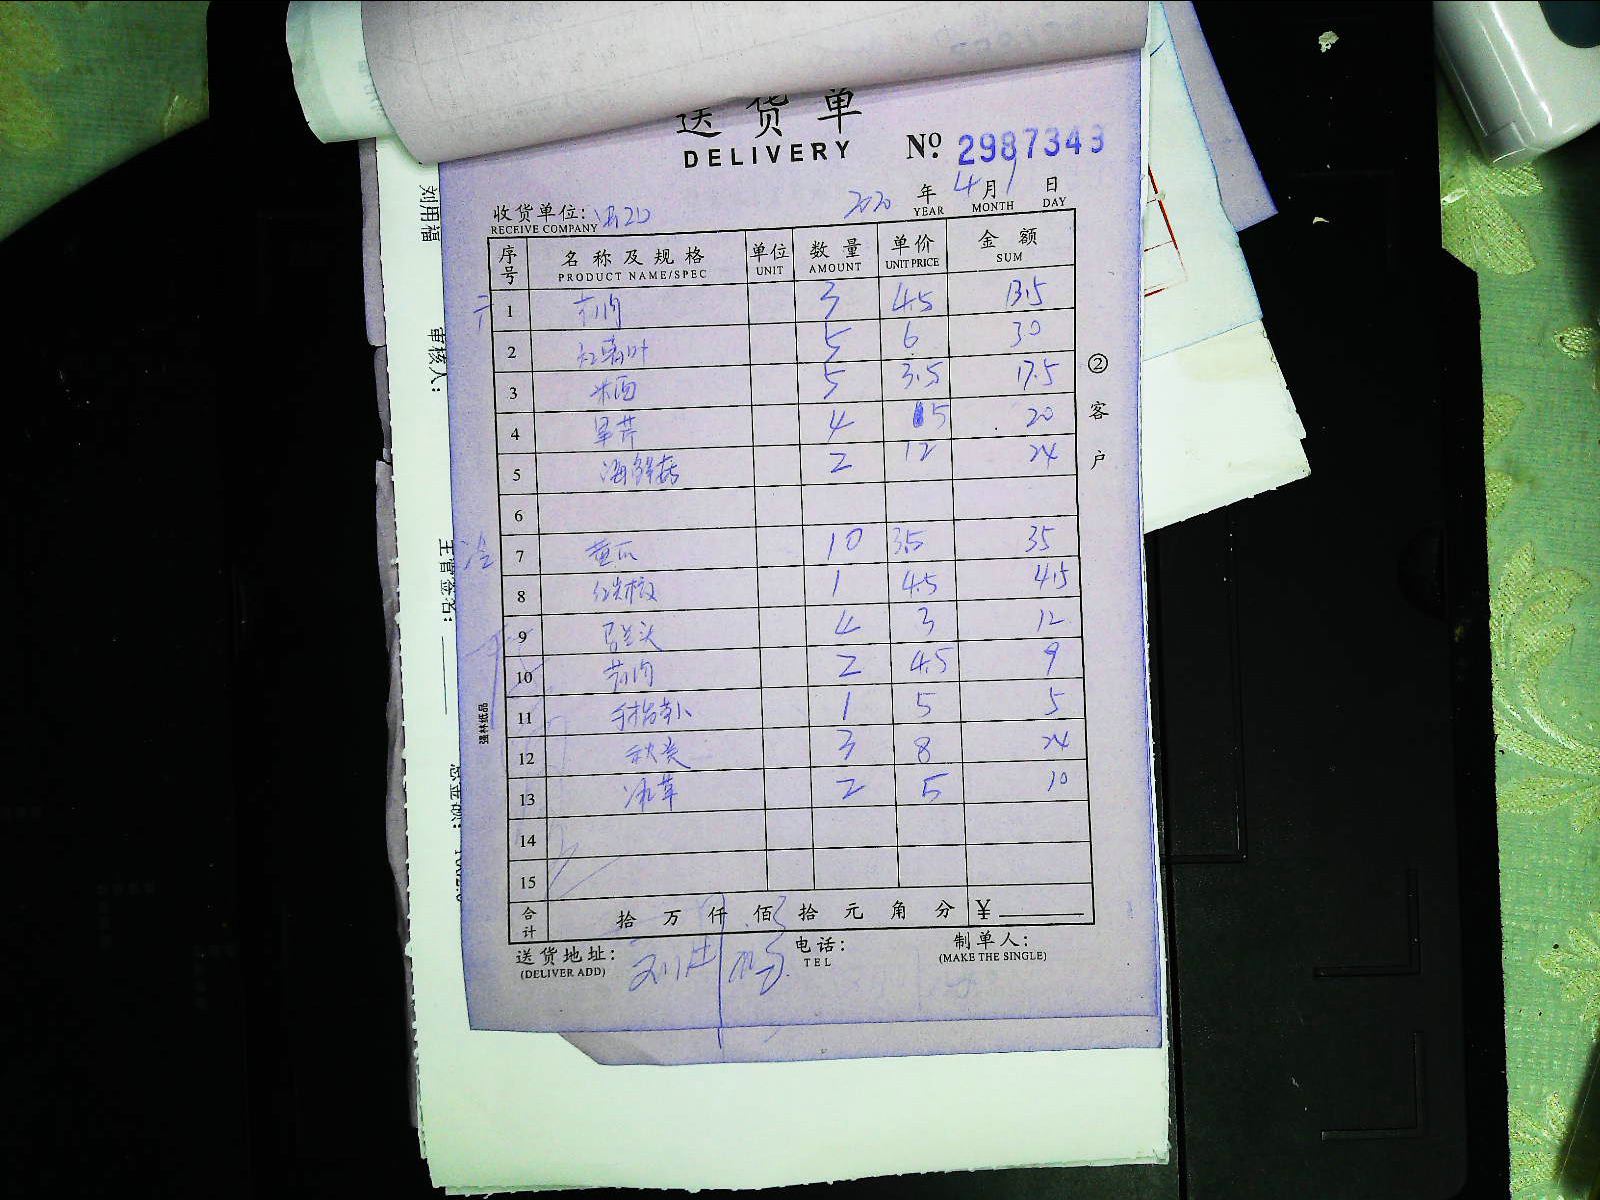 送货单
DELIVERY
No. 2987343
2020 年 4 月 1 日
YEAR MONTH DAY
收货单位:
RECEIVE COMPANY
序号 名称及规格 单位 数量 单价 金额
PRODUCT NAME/SPEC UNIT AMOUNT UNIT PRICE SUM
1 3 4.5 13.5
2 红薯叶 5 6 30
3 5 3.5 17.5
4 旱芹 4 5 20
5 海鲜菇 2 12 24
6
冷 7 黄瓜 10 3.5 35
8 红尖椒 1 4.5 4.5
9 马兰头 4 3 12
10 2 4.5 9
11 手指萝卜 1 5 5
12 秋葵 3 8 24
13 冰草 2 5 10
14
15
合计 拾 万 仟 佰 拾 元 角 分 ¥
送货地址: 电话: 制单人:
(DELIVER ADD) TEL (MAKE THE SINGLE)
②客户
强林纸品
刘用福
审核人:
主管签名:
总金额: